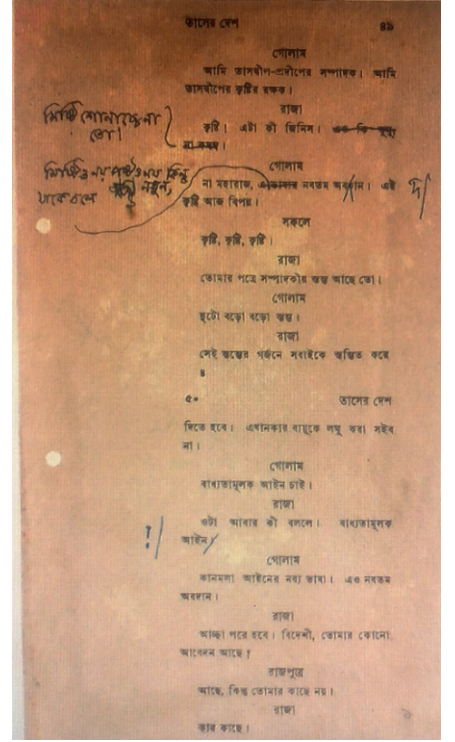 তাসের দেশ ৪৯
গোলাম
আমি তাসদ্বীপ-প্রদীপের সম্পাদক। আমি
তাসদ্বীপের কৃষ্টির রক্ষক।
রাজা
মিষ্টি শোনাচ্ছে না
তো।
কৃষ্টি। এটা কী জিনিস।
গোলাম
মিষ্টিও নয় স্পষ্টও নয় কিন্তু
নতুন,
যাকে বলে
না মহারাজ, নবতম অবদান। এই দ/
কৃষ্টি আজ বিপন্ন।
সকলে
কৃষ্টি, কৃষ্টি, কৃষ্টি।
রাজা
তোমার পত্রে সম্পাদকীয় স্তম্ভ আছে তো।
গোলাম
দুটো বড়ো বড়ো স্তম্ভ।
রাজা
সেই স্তম্ভের গর্জনে সবাইকে স্তম্ভিত করে
৪
৫০ তাসের দেশ
দিতে হবে। এখানকার বায়ুকে লঘু করা সইব
না।
গোলাম
বাধ্যতামূলক আইন চাই।
রাজা
ওটা আবার কী বললে। বাধ্যতামূলক
!/ আইন/
গোলাম
কানমলা আইনের নব্য ভাষা। এও নবতম
অবদান।
রাজা
আচ্ছা পরে হবে। বিদেশী, তোমার কোনো
আবেদন আছে?
রাজপুত্র
আছে, কিন্তু তোমার কাছে নয়।
রাজা
কার কাছে।